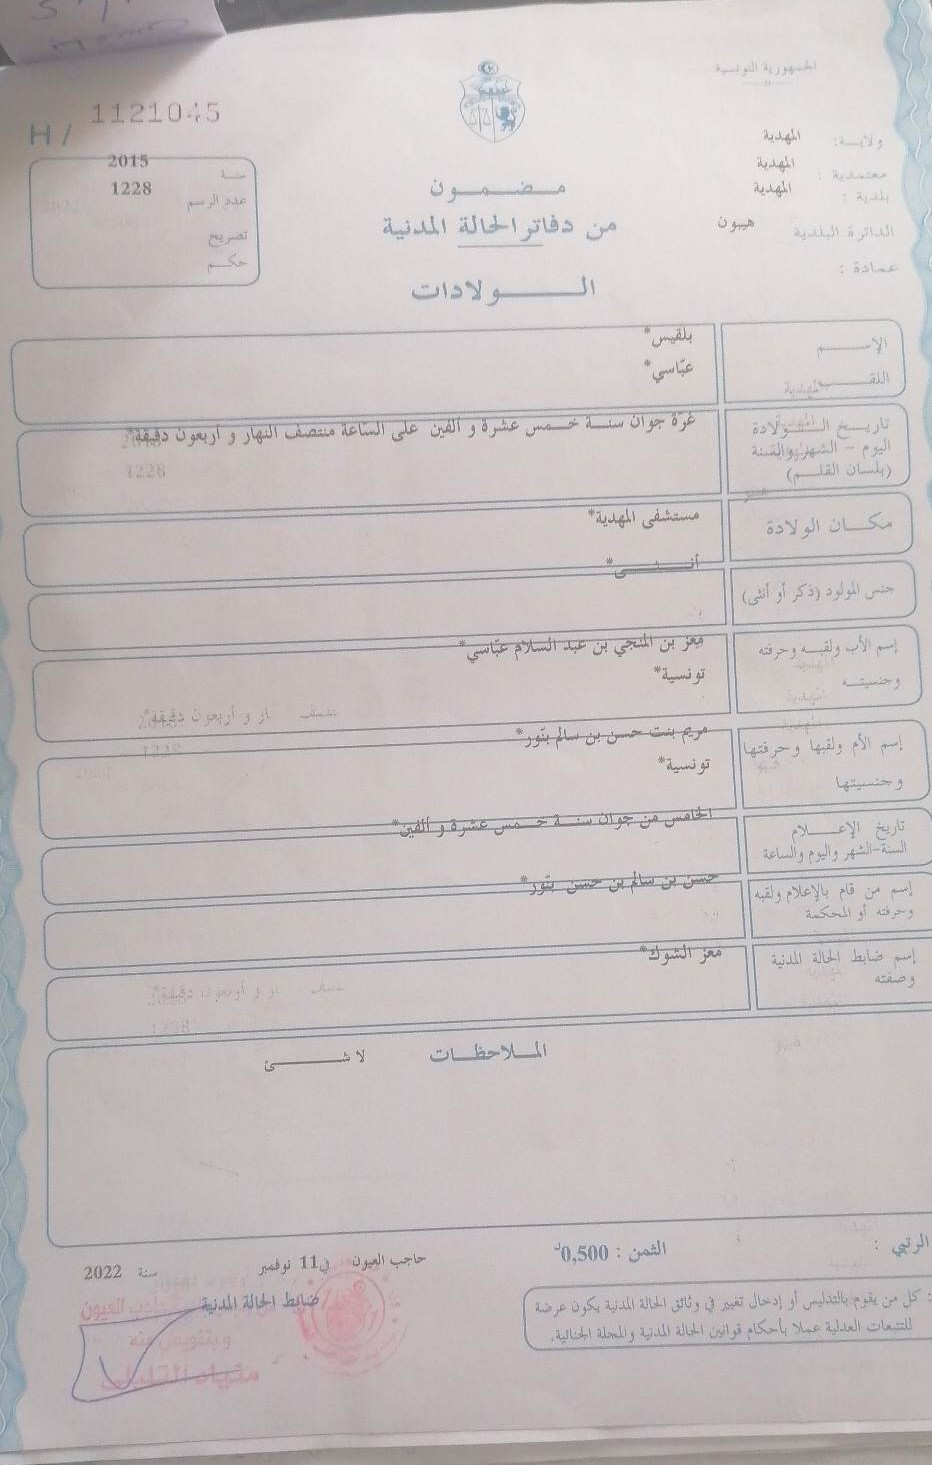 الجمهورية التونسية
H / 1121045
ولاية: المهدية
معتمدية : المهدية
بلدية : المهدية
الدائرة البلدية هيبون
عمادة :
سنة 2015
عدد الرسم 1228
تصريح
حكم
مضمون
من دفاتر الحالة المدنية
الولادات
الإسم بلقيس*
اللقب عبّاسي*
تاريخ الولادة غرّة جوان سنة خمس عشرة و ألفين على الساعة منتصف النهار و أربعون دقيقة*
اليوم - الشهر والسنة
(بلسان القلم)
مكان الولادة مستشفى المهدية*
جنس المولود (ذكر أو أنثى) أنثى*
إسم الأب ولقبه وحرفته معز بن المنجي بن عبد السلام عبّاسي*
وجنسيته تونسية*
إسم الأم ولقبها وحرفتها مريم بنت حسن بن سالم بنّور*
وجنسيتها تونسية*
تاريخ الإعلام الخامس من جوان سنة خمس عشرة و ألفين*
السنة-الشهر واليوم والساعة
إسم من قام بالإعلام ولقبه حسن بن سالم بن حسن بنّور*
وحرفته أو المحكمة
إسم ضابط الحالة المدنية معز الشوك*
وصفته
الملاحظات لا شئ
الرتبي :
الثمن : 0,500د
حاجب العيون في 11 نوفمبر سنة 2022
ضابط الحالة المدنية
: كل من يقوم بالتدليس أو إدخال تغيير في وثائق الحالة المدنية يكون عرضة
للتتبعات العدلية عملا بأحكام قوانين الحالة المدنية والمجلة الجنائية.
وبتفويض منه